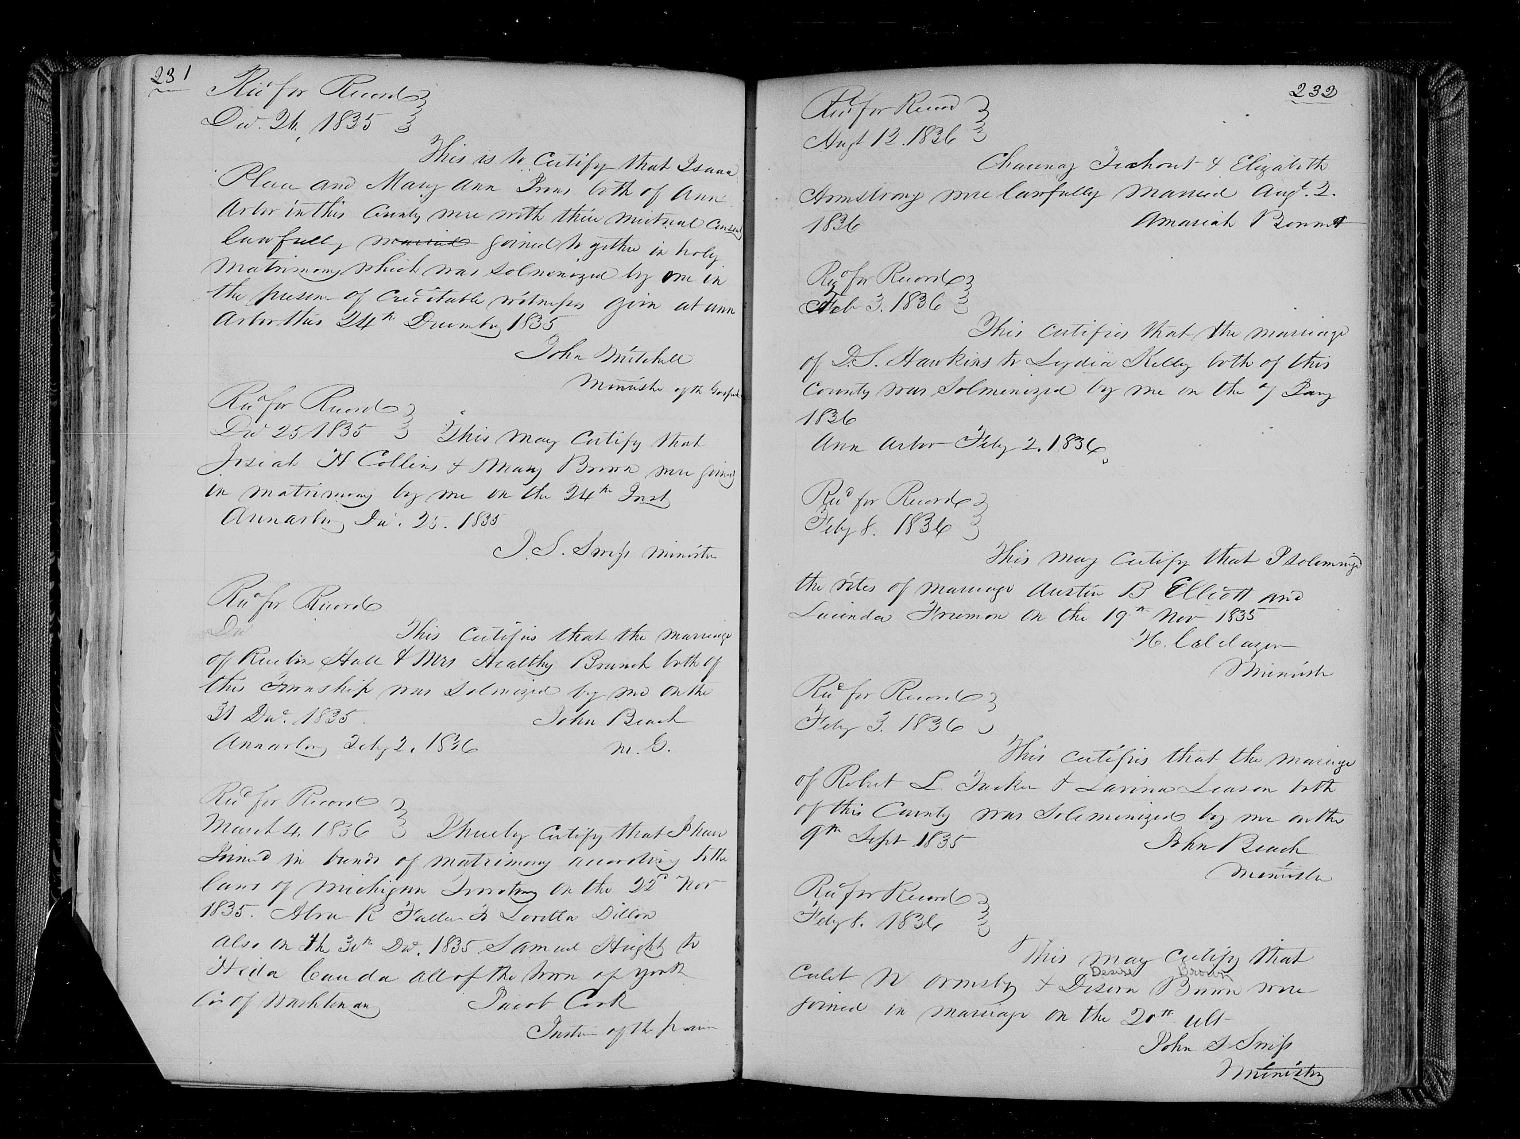 231
Rec'd for Record
Dec. 26, 1835
This is to Certify that Isaac
Place and Mary Ann Irons both of Ann
Arbor in this County were with their mutual consent
lawfully married joined together in holy
Matrimony which was Solmenized by me in
the presence of creditable witnesses Given at Ann
Arbor this 24th December 1835
John Mitchell
Minister of the Gospel
Rec'd for Record
Dec 25 1835 This may certify that
Josiah H Collins & Mary Brown were joined
in matrimony by me on the 24th Inst
Annarbor, Dec. 25. 1835
Minister
Rec'd for Record
Dec
This certifies that the marriage
of Reubin Hall & Mrs Healthy Branch both of
this Township was Solmnized by me on the
31 Dec. 1835. John Beach
Annarbor Feby 2, 1836 M. G.
Rec'd for Record
March 4. 1836 I hereby certify that I have
Joined in bands of matrimony according to the
laws of Michigan Territory on the 22d Nov
1835. R Fuller to Loretta Dillon
also on the 30th Dec. 1835 Samuel Hight to
all of the town of York
Co of Washtenaw Jacob Cook
Justice of the peace
232
Rec'd for Record
Augt 13. 1836
Chauncy & Elizabeth
Armstrong were lawfully married Augt. 2.
1836 Amariah Bennet
Rec'd for Record
Feb 3. 1836
This certifies that the marriage
of D. S. Hawkins to Lydia Kelly both of this
County was Solmenized by me on the 7 Jany
1836
Ann Arbor Feby 2. 1836.
Rec'd for Record
Feby 8. 1836
This may certify that I solemnized
the rites of marriage Austin B Elliott and
Lucinda Freeman on the 19th Nov 1835
Minister
Rec'd for Record
Feby 3. 1836
This certifies that the marriage
of Robert L. Tucker & Lavina Leason both
of this County was Solemenized by me on the
9th Sept 1835 John Beach
Minister
Rec'd for Record
Feby 8. 1836
This may certify that
Desire Brown
Caleb N Ormsby & Brown were
joined in marriage on the 20th ult
John S
Minister